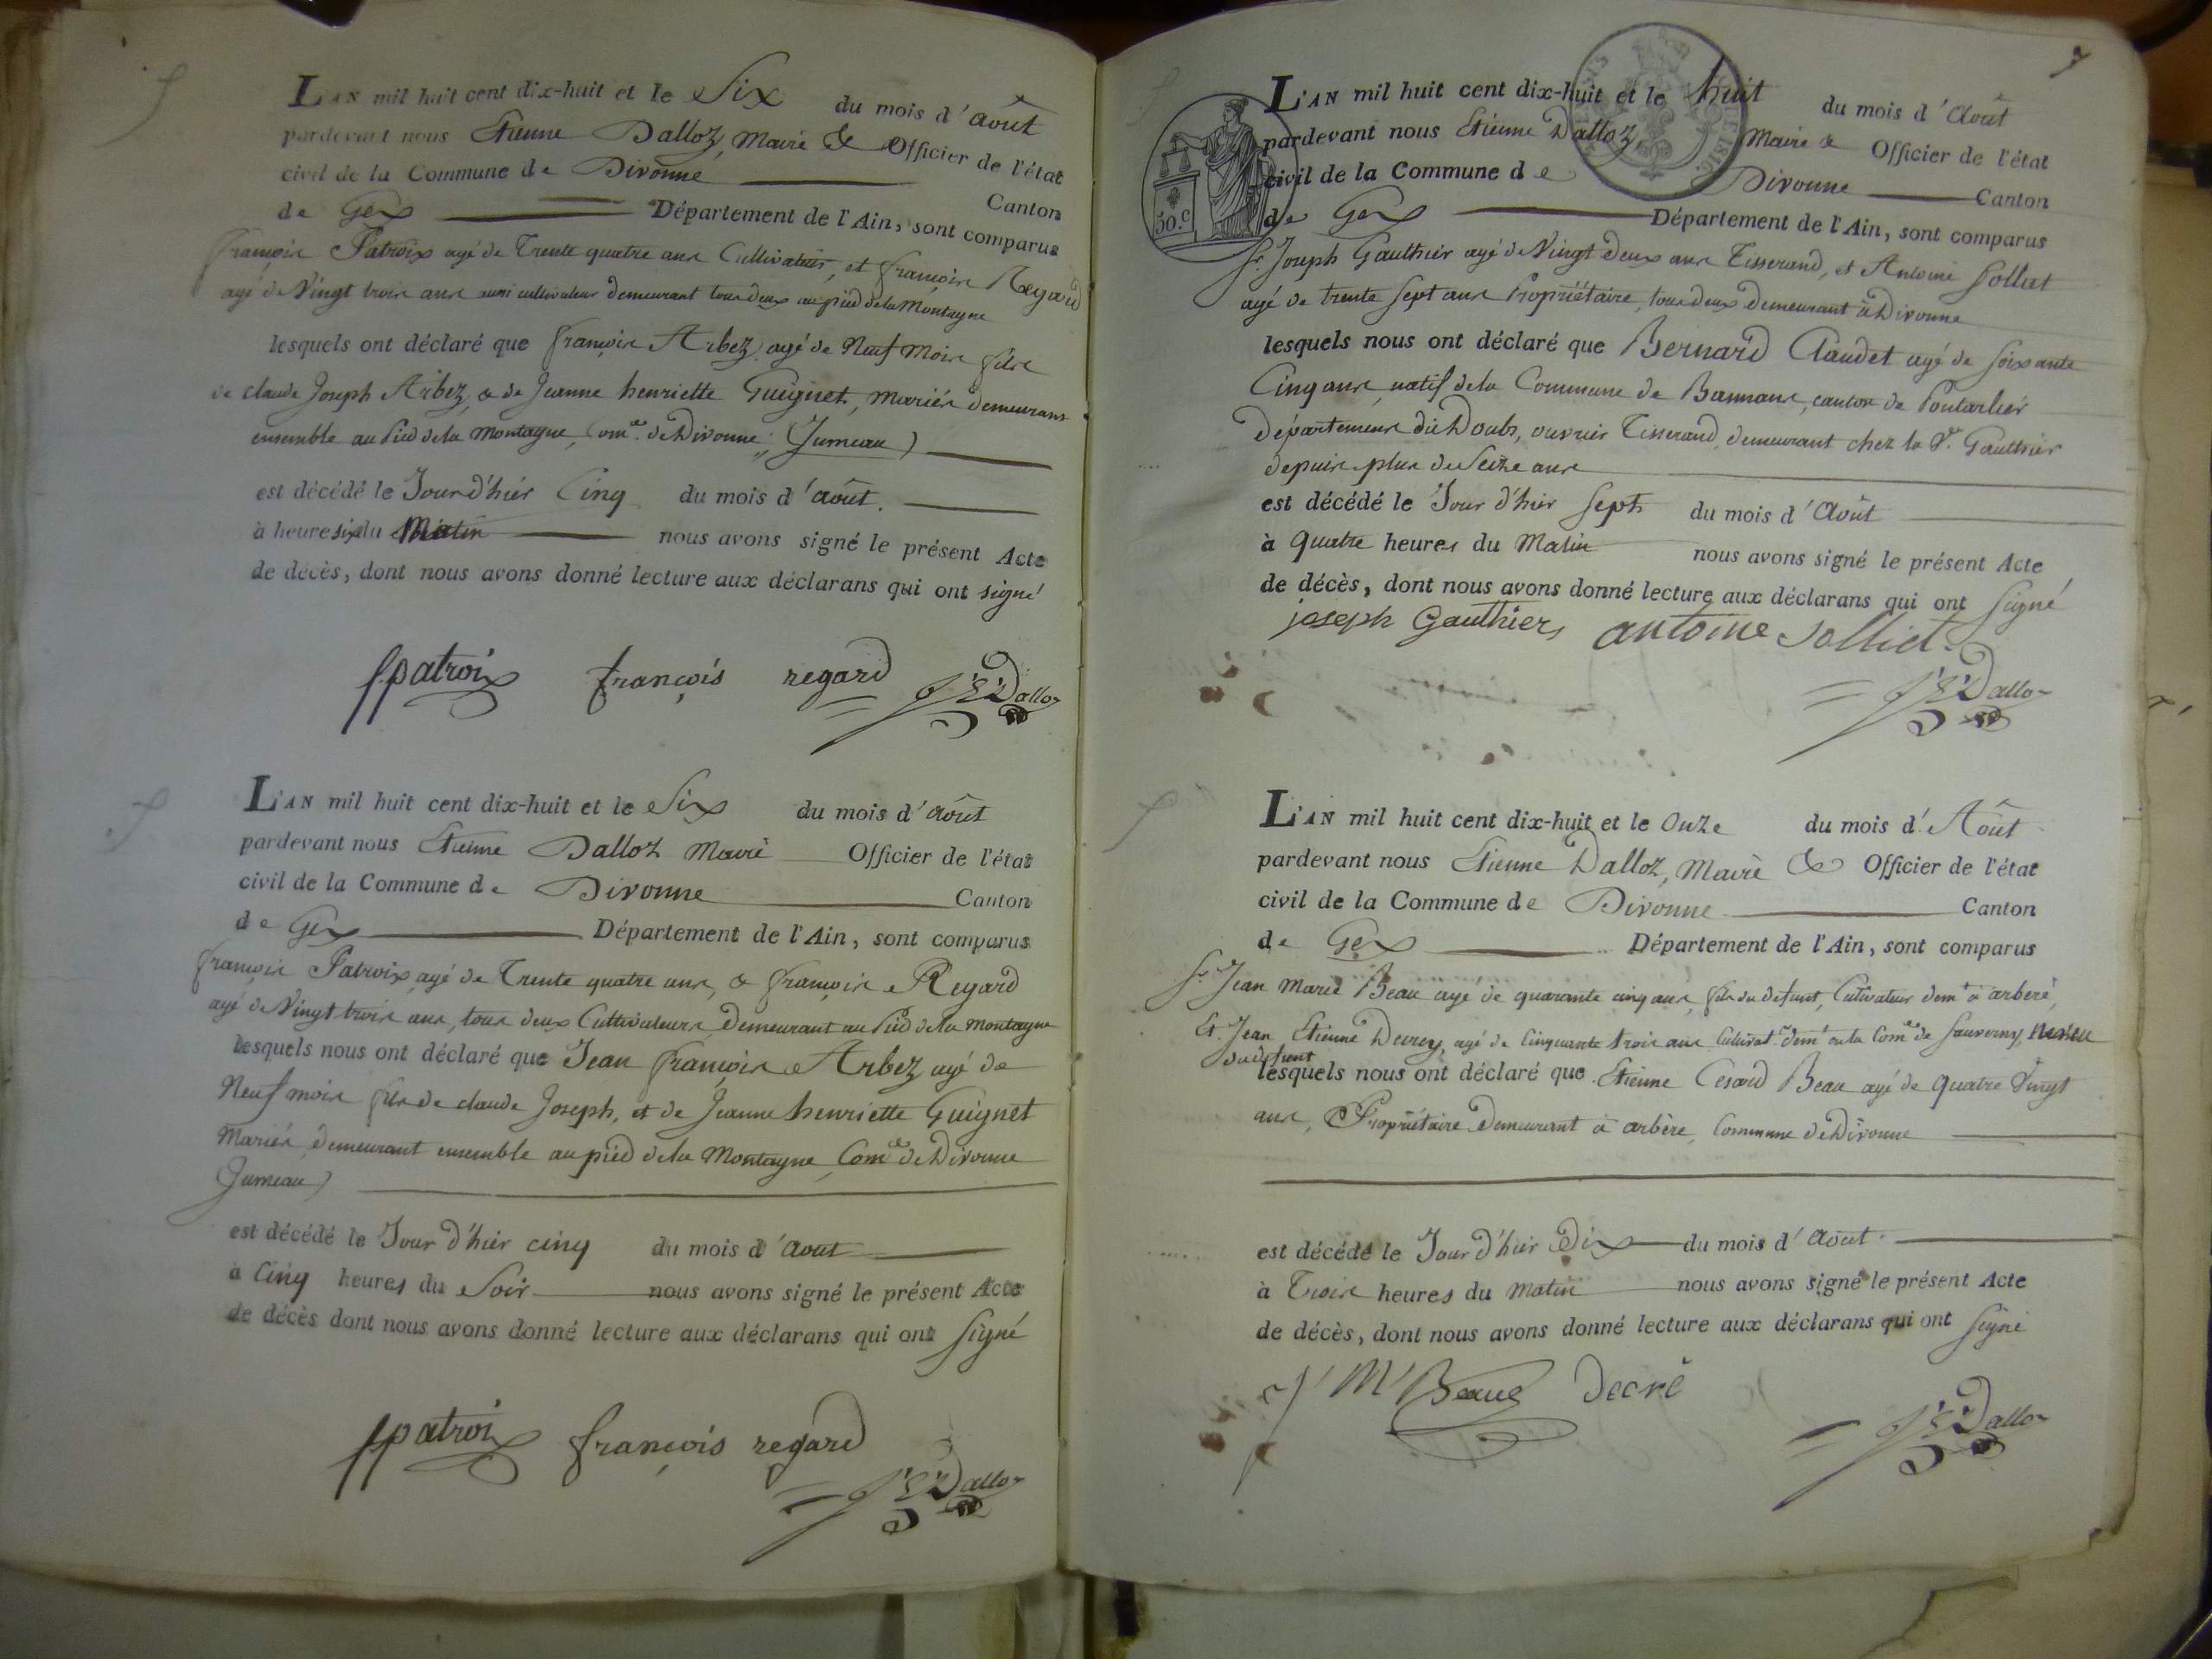 L'AN mil huit cent dix-huit et le Six du mois d'août
pardevant nous Etienne Dalloz, Maire & Officier de l'état
civil de la Commune de Divonne Canton
de Gex Département de l'Ain, sont comparus
françois Patroix agé de Trente quatre ans Cultivateur, et françois Regard
agé de Vingt trois ans aussi cultivateur demeurant tous deux au pied de la Montagne
lesquels ont déclaré que françois Arbez agé de Neuf Mois fils
de claude Joseph Arbez, & de Jeanne henriette Guignet, Mariés demeurans
ensemble au Pied de la Montagne, Com.e de Divonne, (Jumeau)
est décédé le Jour d'hier Cinq du mois d'août.
à heure six du Matin nous avons signé le présent Acte
de décès, dont nous avons donné lecture aux déclarans qui ont signé
fpatroix françois regard J E Dalloz
L'AN mil huit cent dix-huit et le Six du mois d'août
pardevant nous Etienne Dalloz Maire Officier de l'état
civil de la Commune de Divonne Canton
de Gex Département de l'Ain, sont comparus
françois Patroix agé de Trente quatre ans, & françois Regard
agé de Vingt trois ans, tous deux Cultivateurs, demeurant au Pied de la Montagne
lesquels nous ont déclaré que Jean françois Arbez agé de
Neuf mois fils de claude Joseph, et de Jeanne henriette Guignet
Mariés, demeurant ensemble au pied de la Montagne, Com.e de Divonne
Jumeau)
est décédé le Jour d'hier cinq du mois d'Aout
à Cinq heures du Soir nous avons signé le présent Acte
de décès dont nous avons donné lecture aux déclarans qui ont signé
fpatroix françois regard
J E Dalloz
7
L'AN mil huit cent dix-huit et le huit du mois d'Août
pardevant nous Etienne Dalloz, Maire & Officier de l'état
civil de la Commune de Divonne Canton
50.c
de Gex Département de l'Ain, sont comparus
S.r Joseph Gauthier agé de Vingt deux ans Tisserand, et Antoine Solliet
agé de trente sept ans Propriétaire, tous deux demeurant à Divonne
lesquels nous ont déclaré que Bernard Claudet agé de soixante
Cinq ans, natif de la Commune de Bannans, canton de Pontarlier
département du Doubs, ouvrier Tisserand, demeurant chez la V.e Gauthier
depuis plus de Seize ans
est décédé le Jour d'hier sept du mois d'Août
à quatre heures du Matin nous avons signé le présent Acte
de décès, dont nous avons donné lecture aux déclarans qui ont signé
joseph Gauthier antoine Solliet
J E Dalloz
L'AN mil huit cent dix-huit et le Onze du mois d'Août
pardevant nous Etienne Dalloz, Maire & Officier de l'état
civil de la Commune de Divonne Canton
de Gex Département de l'Ain, sont comparus
S.r Jean Marie Beau agé de quarante cinq ans, fils du defunt, Cultivateur dem.t à arbere,
et Jean Etienne agé de Cinquante trois ans Cultivat.r dem.t en la Com.e de Sauverny, Neveu
du defunt
lesquels nous ont déclaré que Etienne Cesard Beau agé de quatre Vingt
ans, Propriétaire demeurant à arbère, Commune de Divonne
est décédé le Jour d'hier Dix du mois d'Août.
à Trois heures du Matin nous avons signé le présent Acte
de décès, dont nous avons donné lecture aux déclarans qui ont signé
J M Beau Decré
J E Dalloz